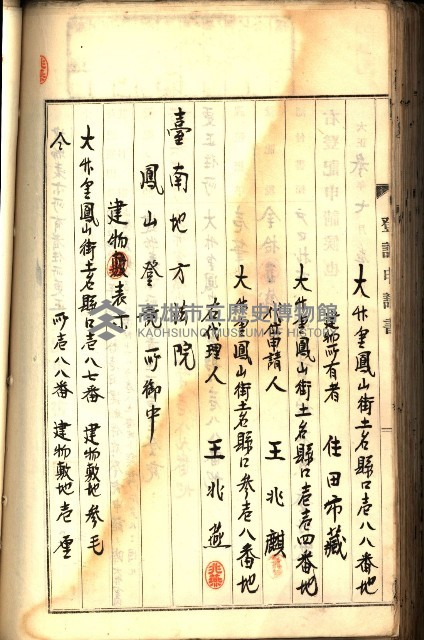 登記申請書
大竹里鳳山街土名縣口壱八八番地
建物所有者 住田市藏
大竹里鳳山街土名縣口壱壱四番地
代位申請人 王兆麒
大竹里鳳山街土名縣口參壱八番地
右代理人 王兆燕
兆燕
臺南地方法院
鳳山登記所御中
建物敷表示
大竹里鳳山街土名縣口壱八七番 建物敷地 參毛
仝 所壱八八番 建物敷地 壱厘
高雄市立歷史博物館
KAOHSIUNG MUSEUM OF HISTORY